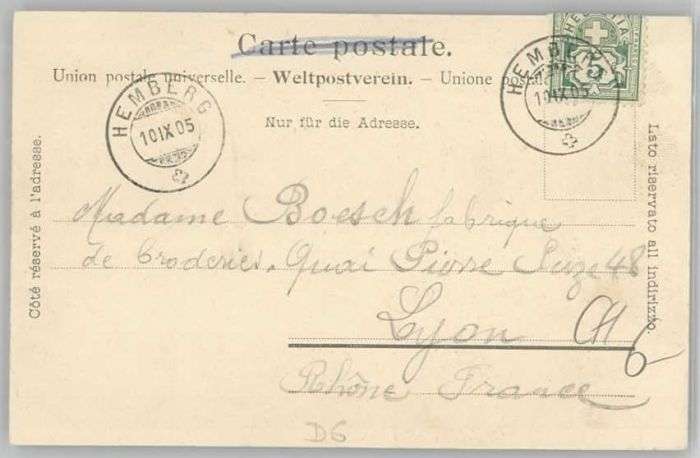 Carte postale.
HELVETIA
5
Union postale universelle. — Weltpostverein. — Unione postale
HEMBERG
10 IX 05
HEMBERG
10 IX 05
Nur für die Adresse.
Côté réservé à l'adresse.
Lsto riservato all indirizzo.
Madame Boesch fabrique
de broderies. Quai Pierre Scize 48
Lyon
Rhône France
D6